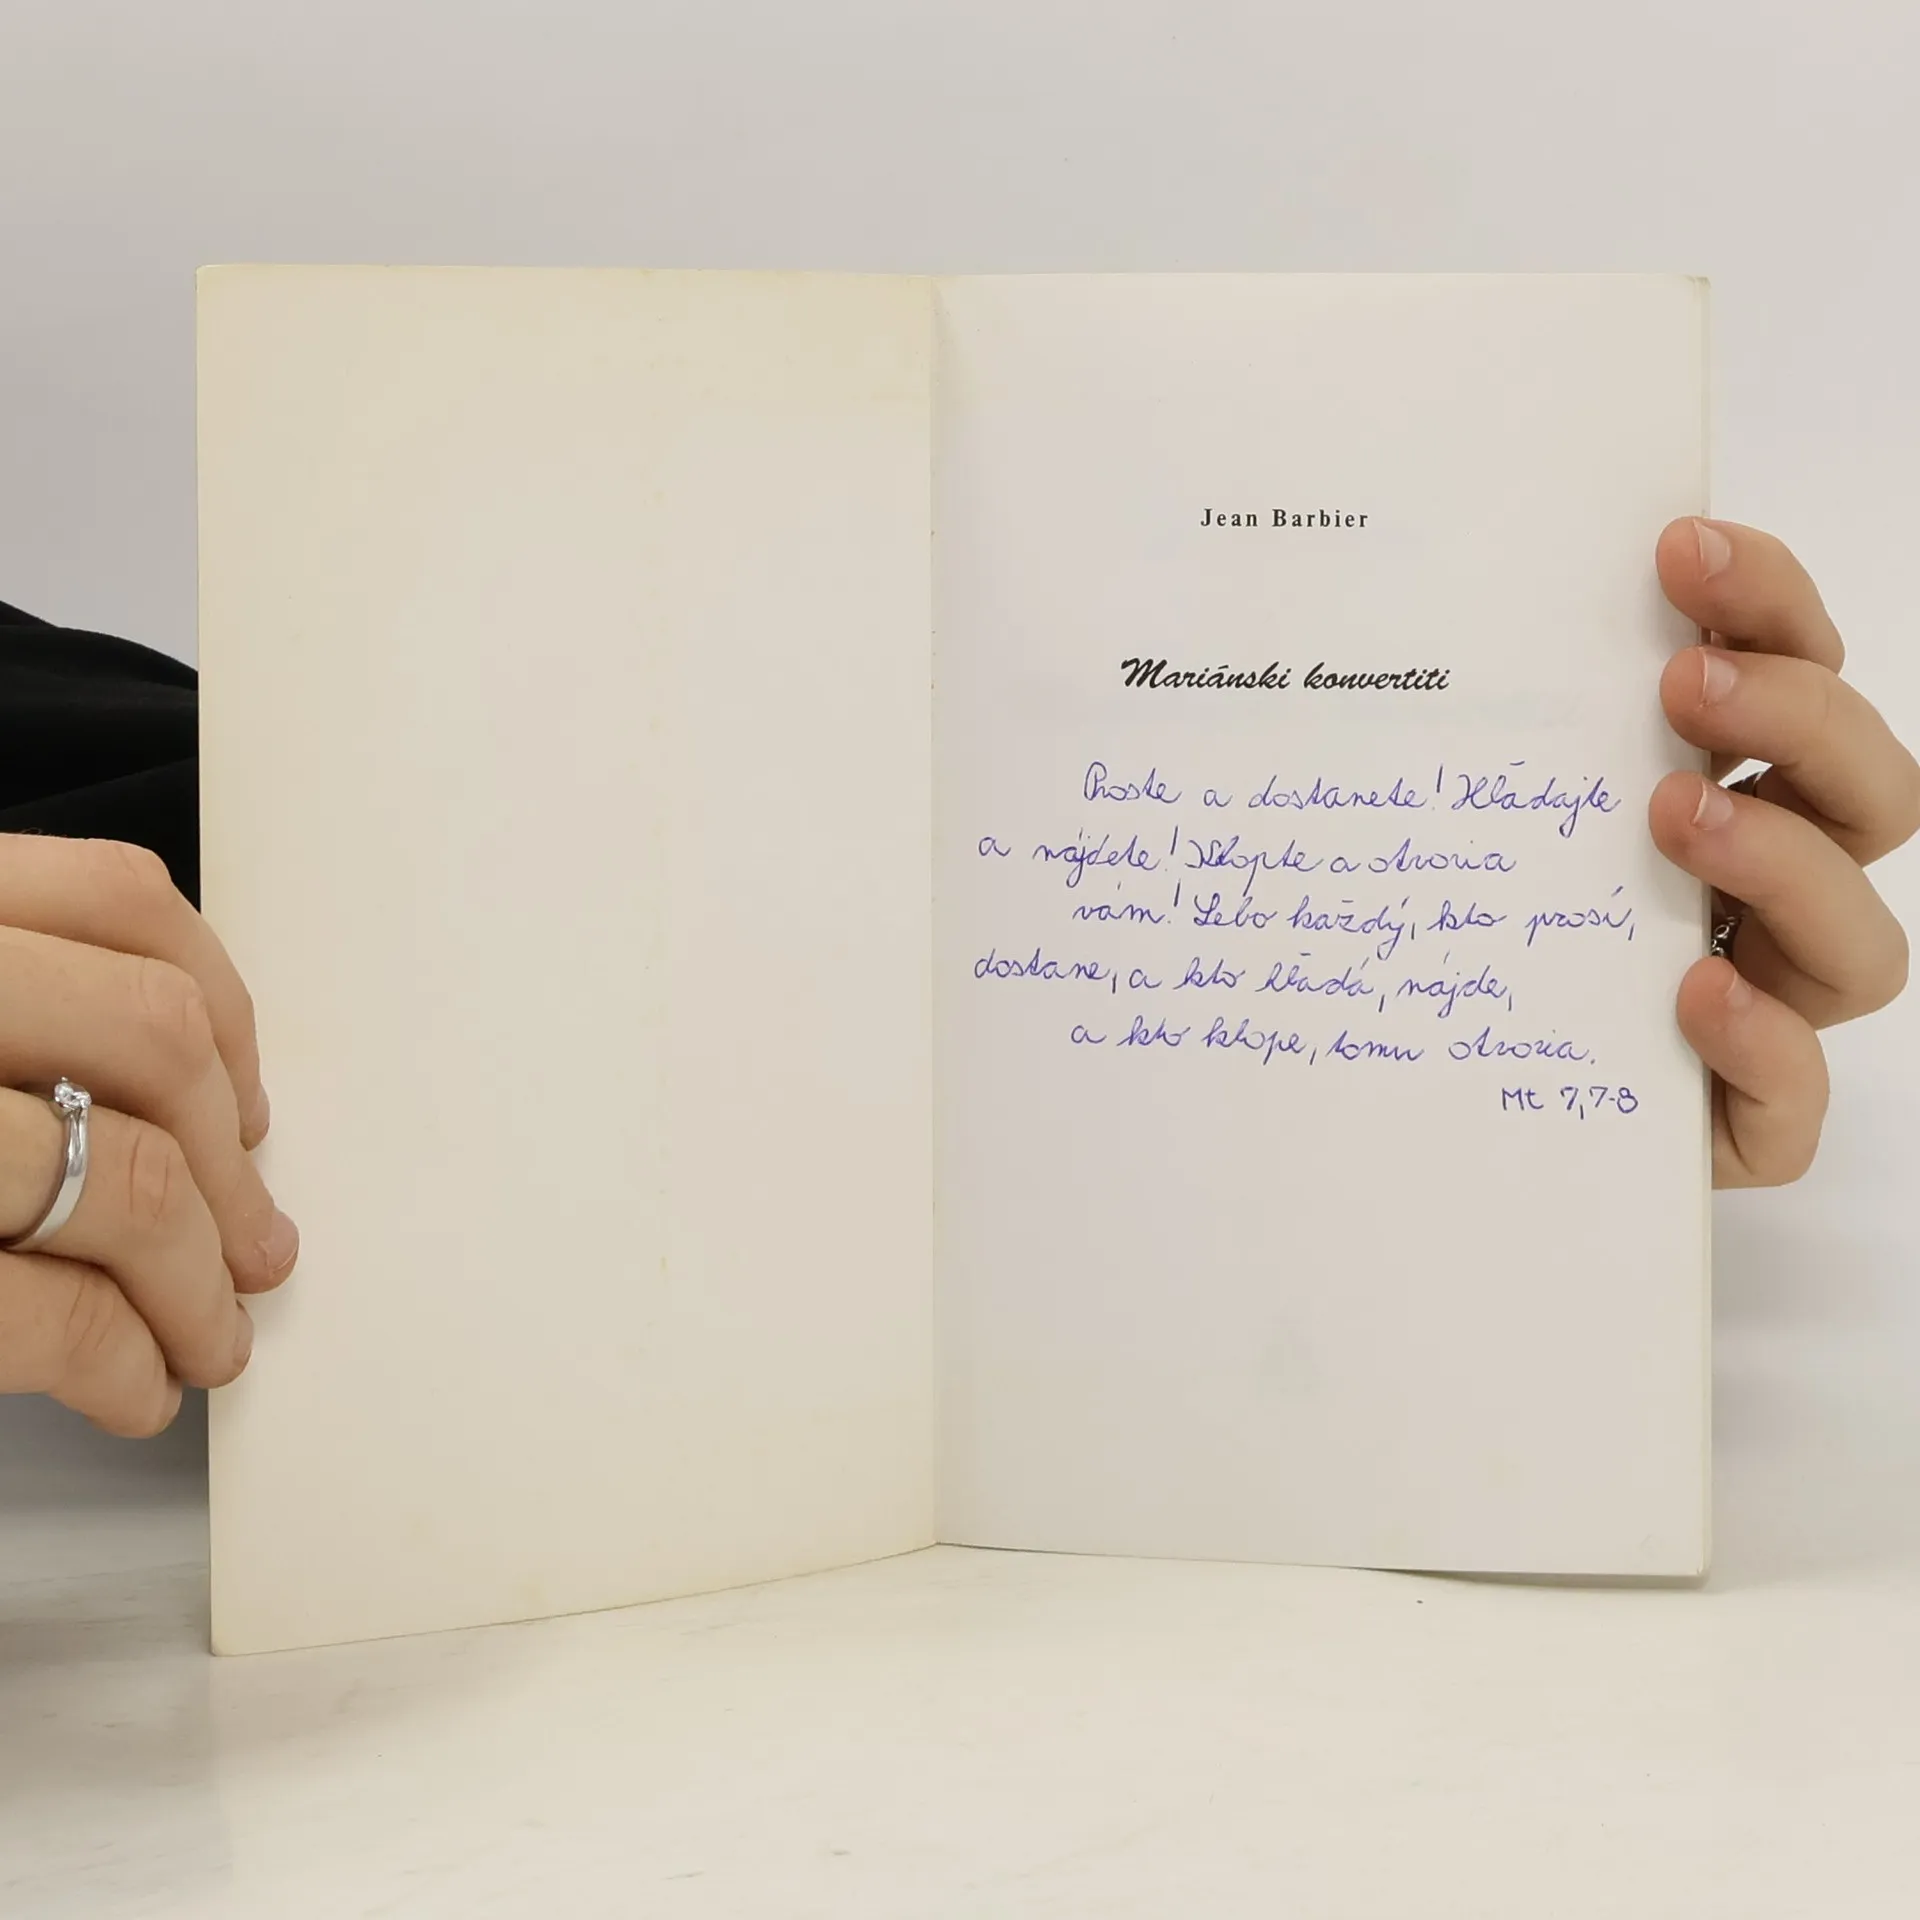 Jean Barbier
Mariánski konvertiti
Proste a dostanete! Hľadajte
a nájdete! Klopte a otvoria
vám! Lebo každý, kto prosí,
dostane, a kto hľadá, nájde,
a kto klope, tomu otvoria.
Mt 7,7-8